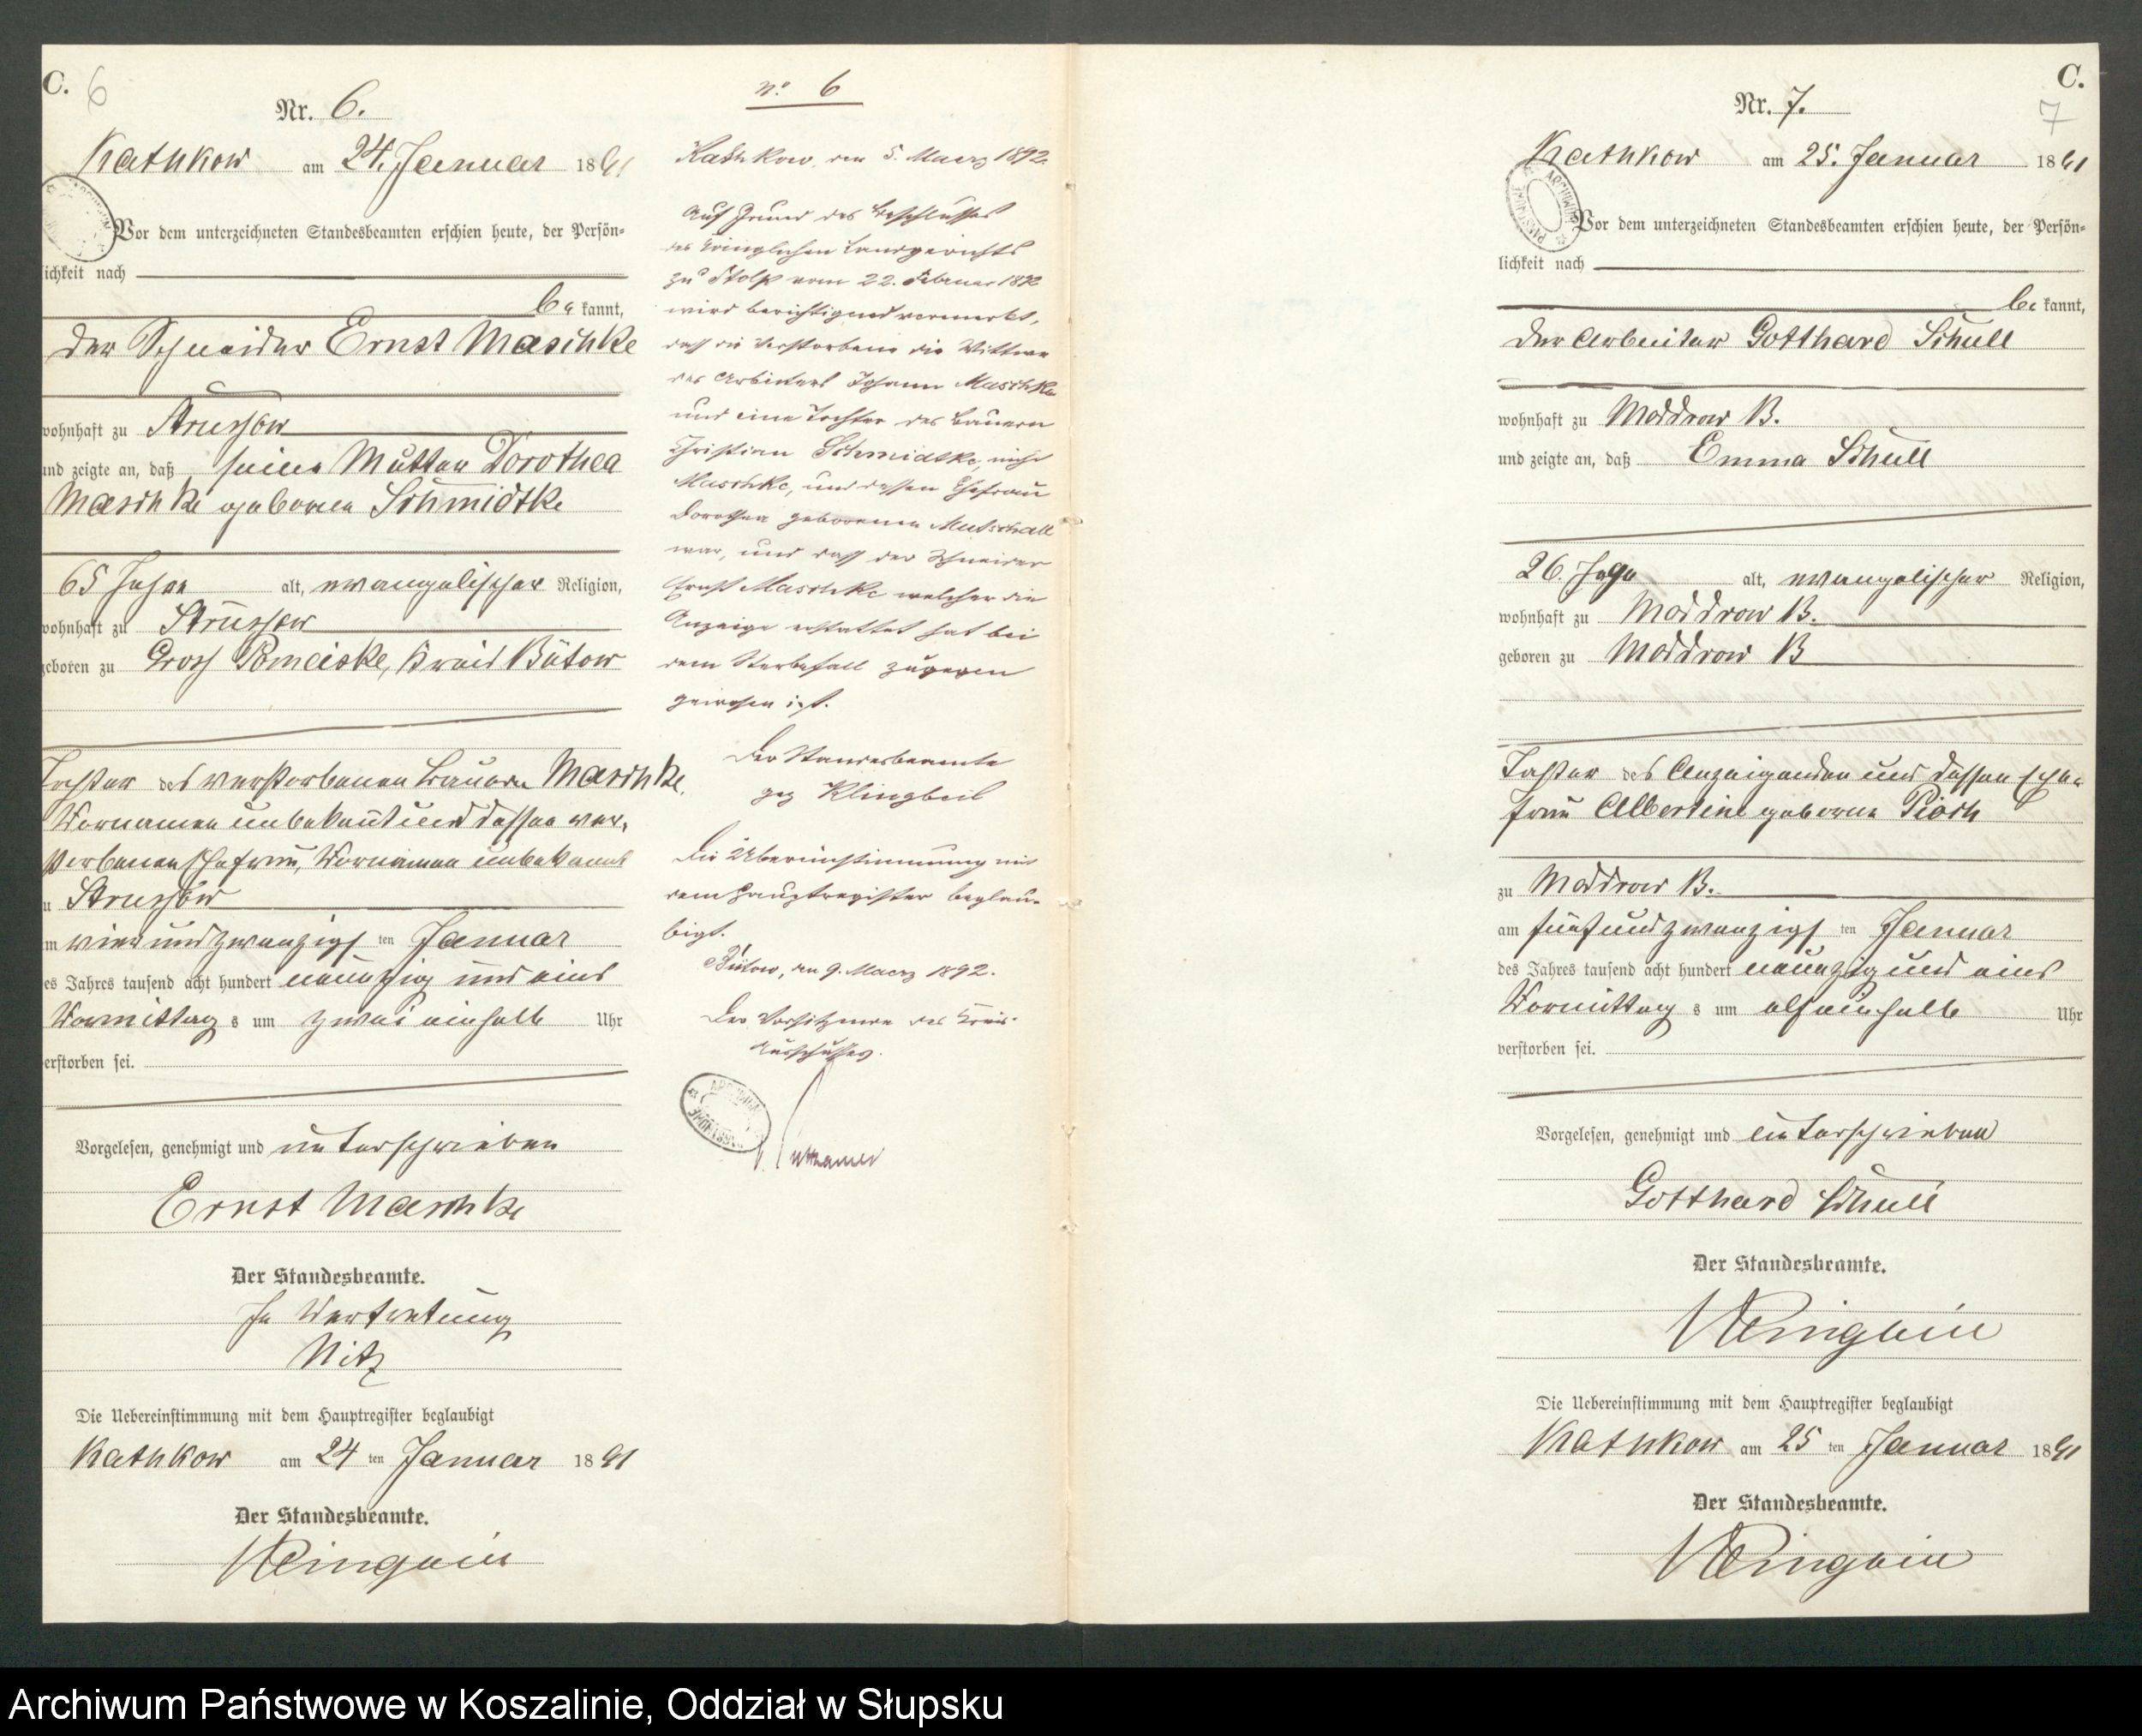 C. 6
Nr. 6.
Kathkow am 24. Januar 1891
Vor dem unterzeichneten Standesbeamten erschien heute, der Persön=
lichkeit nach
be kannt,
der Schneider Ernst Maschke
wohnhaft zu Strussow
und zeigte an, daß seine Mutter Dorothea
Maschke geboren Schmidtke
65 Jahre alt, evangelischer Religion,
wohnhaft zu Strussow
geboren zu Gross Pomeiske, Kreis Bütow
Tochter des verstorbenen Bauern Maschke,
Vornamen unbekannt und dessen ver=
storbenen Ehefrau, Vornamen unbekannt
zu Strussow
am vierundzwanzigs ten Januar
des Jahres tausend acht hundert neunzig und eins
Vormittag s um zwei einhalb Uhr
verstorben sei.
Vorgelesen, genehmigt und unterschrieben
Ernst Maschke
Der Standesbeamte.
In Vertretung
Nitz
Die Uebereinstimmung mit dem Hauptregister beglaubigt
Kathkow am 24 ten Januar 1891
Der Standesbeamte.
Klingbeil
No. 6
Kathkow, den 5. Maerz 1892.
Auf Grund des Beschlusses
des Königlichen Landgerichts
zu Stolp vom 22. Februar 1892
wird berichtigend vermerkt,
daß die Verstorbene die Wittwe
des Arbeiters Johann Maschke
und eine Tochter des Bauern
Christian Schmidtke, nicht
Maschke, und dessen Ehefrau
Dorothea geborenen Mutschall
war, und daß der Schneider
Ernst Maschke welcher die
Anzeige erstattet hat bei
dem Sterbefall zugegen
gewesen ist.
Der Standesbeamte
gez Klingbeil
Die Übereinstimmung mit
dem Hauptregister beglau=
bigt.
Bütow, den 9. Maerz 1892.
Der Vorsitzende des Kreis-
Ausschusses.
Puttkamer
C.
7
Nr. 7.
Kathkow am 25. Januar 1891
Vor dem unterzeichneten Standesbeamten erschien heute, der Persön=
lichkeit nach
be kannt,
der Arbeiter Gotthard Schull
wohnhaft zu Moddrow B.
und zeigte an, daß Emma Schull
26. Tage alt, evangelischer Religion,
wohnhaft zu Moddrow B.
geboren zu Moddrow B
Tochter des Anzeigenden und dessen Ehe=
frau Albertine geborne Pioch
zu Moddrow B.
am fünfundzwanzigs ten Januar
des Jahres tausend acht hundert neunzig und eins
Vormittag s um elf einhalb Uhr
verstorben sei.
Vorgelesen, genehmigt und unterschrieben
Gotthard Schull
Der Standesbeamte.
Klingbeil
Die Uebereinstimmung mit dem Hauptregister beglaubigt
Kathkow am 25 ten Januar 1891
Der Standesbeamte.
Klingbeil
Archiwum Państwowe w Koszalinie, Oddział w Słupsku